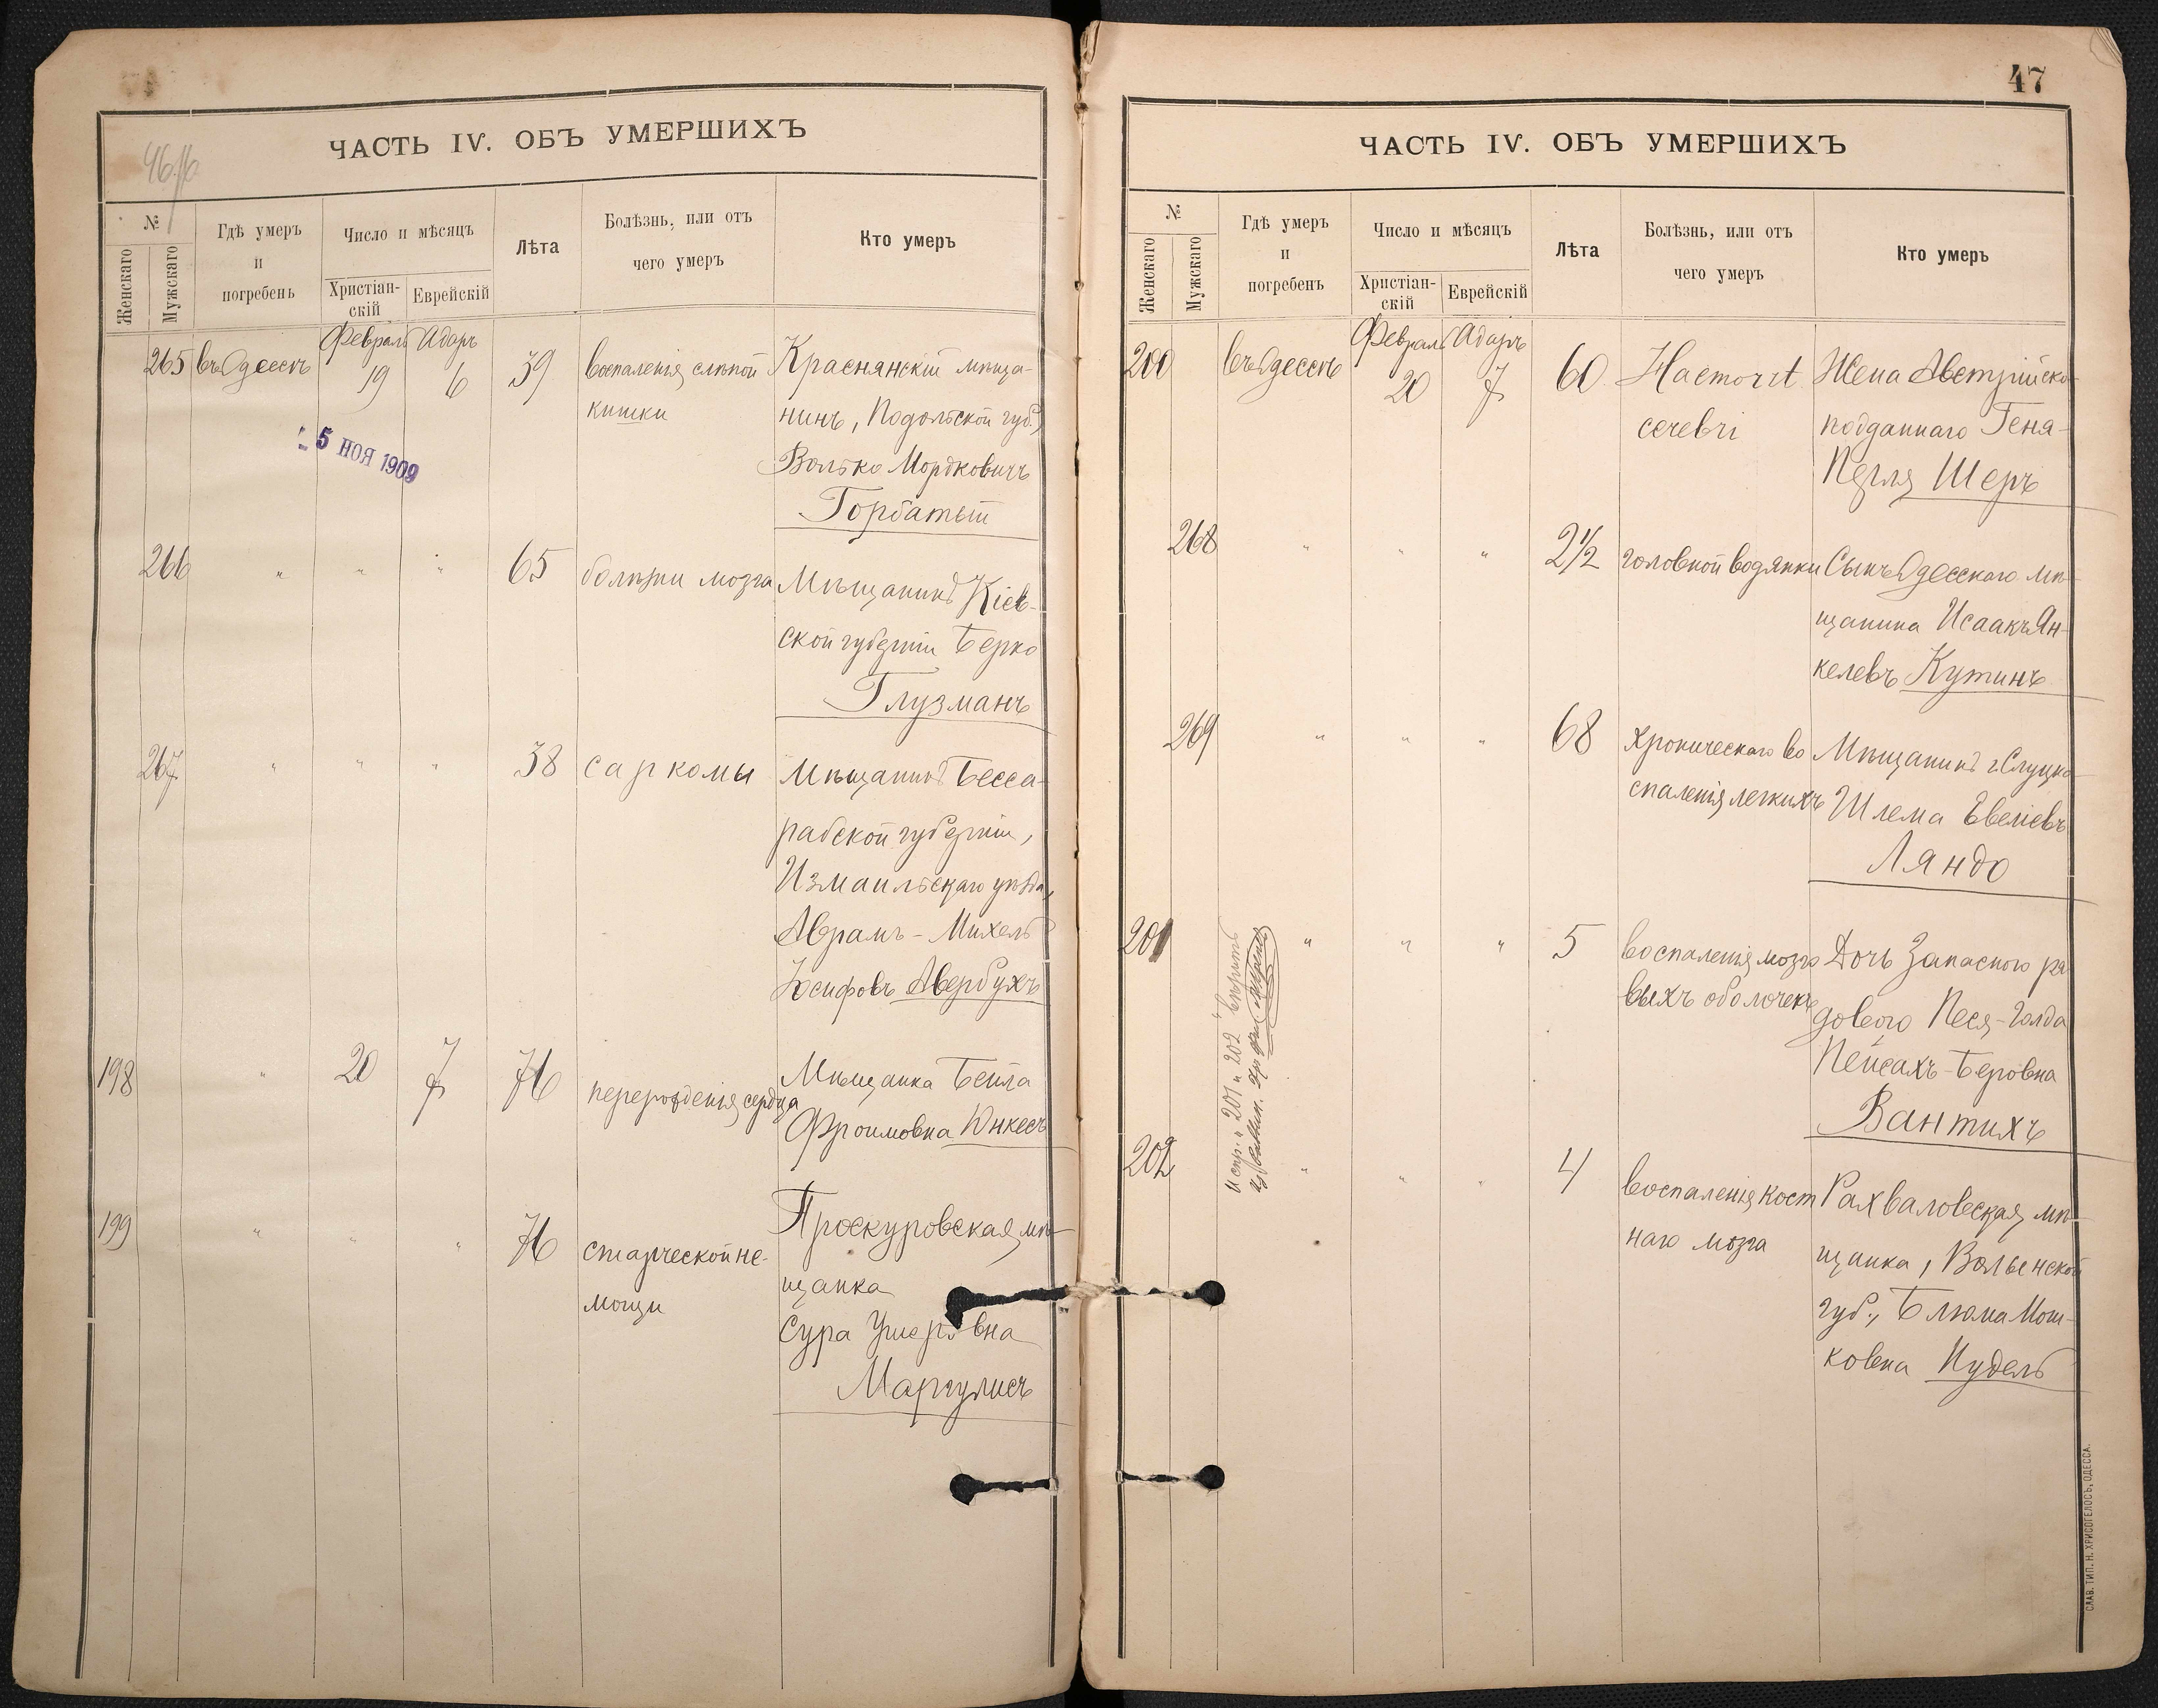 ЧАСТЬ IV. ОБЪ УМЕРШИХЪ
№
Женскаго
Мужскаго
Гдѣ умеръ
и
погребенъ
Число и мѣсяцъ
Христіан-
скій
Еврейскій
Лѣта
Болѣзнь, или отъ
чего умеръ
Кто умеръ
265 въ Одессѣ Февраль 19 Адаръ 6 39 воспаленія слѣпой
кишки
Краснянскій мѣща-
нинъ, Подольской губ.,
Волько Мордковичъ
Горбатый
5 НОЯ 1909
266 " " " 65 болѣзни мозга
Мѣщанинъ Кіев-
ской губерніи Берко
Глузманъ
267 " " " 38 саркомы
Мѣщанинъ Бесса-
рабской губерніи,
Измаильскаго уѣзда,
Аврамъ-Михель
Іосифовъ Авербухъ
198 " 20 7 76 перерожденія сердца
Мѣщанка Бейла
Фроимовна Юнкесъ
199 " " " 76 старческой не-
мощи
Проскуровская мѣ-
щанка
Сура Ушеровна
Маргулисъ
47
ЧАСТЬ IV. ОБЪ УМЕРШИХЪ
№
Женскаго
Мужскаго
Гдѣ умеръ
и
погребенъ
Число и мѣсяцъ
Христіан-
скій
Еврейскій
Лѣта
Болѣзнь, или отъ
чего умеръ
Кто умеръ
200 въ Одессѣ Февраль 20 Адаръ 7 60
Жена Австрійско-
подданнаго Геня-
Перля Шеръ
268 " " " 2½ головной водянки
Сынъ Одесскаго мѣ-
щанина Исаакъ Ян-
келевъ Кутинъ
269 " " " 68 хроническаго во
спаленія легкихъ
Мѣщанинъ г. Слуцка
Шлема Евелевъ
Ляндо
201 " " " 5 воспаленія мозго
выхъ оболочекъ
Дочь Запаснаго ря
дового Песя-Голда
Пейсахъ-Беровна
Вантихъ
Испр. "201 и 202" вѣрить
202 " " " 4 воспаленія кост
наго мозга
Рахваловская мѣ-
щанка, Волынской
губ., Блюма Мош-
ковна Пудель
СЛАВ. ТИП. Н. ХРИСОГЕЛОСЪ, ОДЕССА.